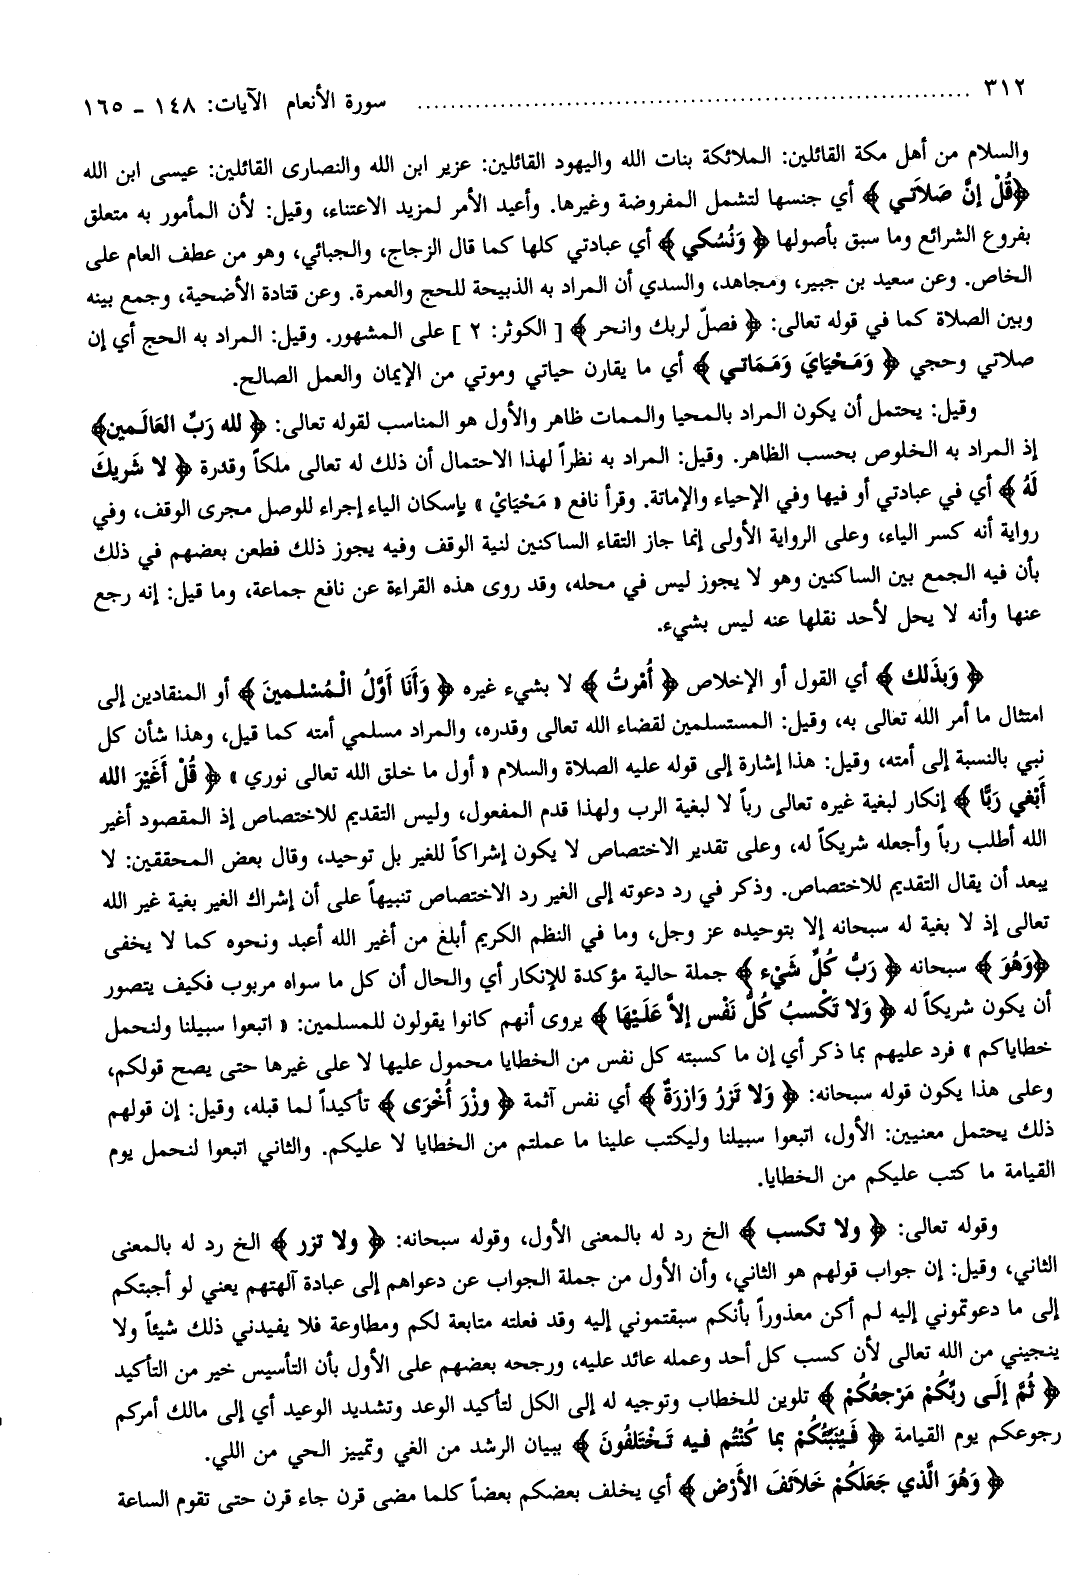 ٣١٢ ........................................................................ سورة الأنعام الآيات: ١٤٨ - ١٦٥
والسلام من أهل مكة القائلين: الملائكة بنات الله واليهود القائلين: عزير ابن الله والنصارى القائلين: عيسى ابن الله
﴿قُلْ إنَّ صَلاَتي﴾ أي جنسها لتشمل المفروضة وغيرها. وأعيد الأمر لمزيد الاعتناء، وقيل: لأن المأمور به متعلق
بفروع الشرائع وما سبق بأصولها ﴿وَنُسُكي﴾ أي عبادتي كلها كما قال الزجاج، والجبائي، وهو من عطف العام على
الخاص. وعن سعيد بن جبير، ومجاهد، والسدي أن المراد به الذبيحة للحج والعمرة. وعن قتادة الأضحية، وجمع بينه
وبين الصلاة كما في قوله تعالى: ﴿فصلّ لربك وانحر﴾ [ الكوثر: ٢ ] على المشهور. وقيل: المراد به الحج أي إن
صلاتي وحجي ﴿وَمَحْيَايَ وَمَمَاتي﴾ أي ما يقارن حياتي وموتي من الإيمان والعمل الصالح.
وقيل: يحتمل أن يكون المراد بالمحيا والممات ظاهر والأول هو المناسب لقوله تعالى: ﴿لله رَبِّ العَالَمين﴾
إذ المراد به الخلوص بحسب الظاهر. وقيل: المراد به نظراً لهذا الاحتمال أن ذلك له تعالى ملكاً وقدرة ﴿لا شَريكَ
لَهُ﴾ أي في عبادتي أو فيها وفي الإحياء والإماتة. وقرأ نافع « مَحْيَايْ » بإسكان الياء إجراء للوصل مجرى الوقف، وفي
رواية أنه كسر الياء، وعلى الرواية الأولى إنما جاز التقاء الساكنين لنية الوقف وفيه يجوز ذلك فطعن بعضهم في ذلك
بأن فيه الجمع بين الساكنين وهو لا يجوز ليس في محله، وقد روى هذه القراءة عن نافع جماعة، وما قيل: إنه رجع
عنها وأنه لا يحل لأحد نقلها عنه ليس بشيء.
﴿وَبذَلك﴾ أي القول أو الإخلاص ﴿أُمْرتُ﴾ لا بشيء غيره ﴿وَأَنَا أَوَّلُ الْمُسْلمينَ﴾ أو المنقادين إلى
امتثال ما أمر الله تعالى به، وقيل: المستسلمين لقضاء الله تعالى وقدره، والمراد مسلمي أمته كما قيل، وهذا شأن كل
نبي بالنسبة إلى أمته، وقيل: هذا إشارة إلى قوله عليه الصلاة والسلام « أول ما خلق الله تعالى نوري » ﴿قُلْ أَغَيْرَ الله
أَبْغي رَبًّا﴾ إنكار لبغية غيره تعالى رباً لا لبغية الرب ولهذا قدم المفعول، وليس التقديم للاختصاص إذ المقصود أغير
الله أطلب رباً وأجعله شريكاً له، وعلى تقدير الاختصاص لا يكون إشراكاً للغير بل توحيد، وقال بعض المحققين: لا
يبعد أن يقال التقديم للاختصاص. وذكر في رد دعوته إلى الغير رد الاختصاص تنبيهاً على أن إشراك الغير بغية غير الله
تعالى إذ لا بغية له سبحانه إلا بتوحيده عز وجل، وما في النظم الكريم أبلغ من أغير الله أعبد ونحوه كما لا يخفى
﴿وَهُوَ﴾ سبحانه ﴿رَبُّ كُلِّ شَيْء﴾ جملة حالية مؤكدة للإنكار أي والحال أن كل ما سواه مربوب فكيف يتصور
أن يكون شريكاً له ﴿وَلا تَكْسبُ كُلُّ نَفْس إلاَّ عَلَيْهَا﴾ يروى أنهم كانوا يقولون للمسلمين: « اتبعوا سبيلنا ولنحمل
خطاياكم » فرد عليهم بما ذكر أي إن ما كسبته كل نفس من الخطايا محمول عليها لا على غيرها حتى يصح قولكم،
وعلى هذا يكون قوله سبحانه: ﴿وَلا تَزرُ وَازرَةٌ﴾ أي نفس آثمة ﴿وزْرَ أُخْرَى﴾ تأكيداً لما قبله، وقيل: إن قولهم
ذلك يحتمل معنيين: الأول، اتبعوا سبيلنا وليكتب علينا ما عملتم من الخطايا لا عليكم. والثاني اتبعوا لنحمل يوم
القيامة ما كتب عليكم من الخطايا.
وقوله تعالى: ﴿ولا تكسب﴾ الخ رد له بالمعنى الأول، وقوله سبحانه: ﴿ولا تزر﴾ الخ رد له بالمعنى
الثاني، وقيل: إن جواب قولهم هو الثاني، وأن الأول من جملة الجواب عن دعواهم إلى عبادة آلهتهم يعني لو أجبتكم
إلى ما دعوتموني إليه لم أكن معذوراً بأنكم سبقتموني إليه وقد فعلته متابعة لكم ومطاوعة فلا يفيدني ذلك شيئاً ولا
ينجيني من الله تعالى لأن كسب كل أحد وعمله عائد عليه، ورجحه بعضهم على الأول بأن التأسيس خير من التأكيد
﴿ثُمَّ إلَى ربِّكُمْ مَرْجعُكُمْ﴾ تلوين للخطاب وتوجيه له إلى الكل لتأكيد الوعد وتشديد الوعيد أي إلى مالك أمركم
رجوعكم يوم القيامة ﴿فَيُنَبِّئُكُمْ بما كُنْتُم فيه تَخْتَلفُونَ﴾ ببيان الرشد من الغي وتمييز الحي من اللي.
﴿وَهُوَ الَّذي جَعَلَكُمْ خَلاَئفَ الأَرْض﴾ أي يخلف بعضكم بعضاً كلما مضى قرن جاء قرن حتى تقوم الساعة